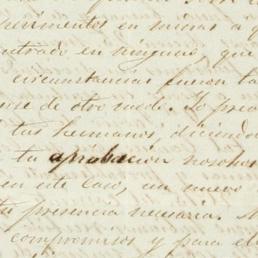 en minas a q
entrado en ninguno, que
circunstancias fueron ta
de otro modo. Yo
tus hermanos, diciendo
tu aprobacion nosotros
en este caso, un nuevo
tu presencia necesaria.
compromisos y para el